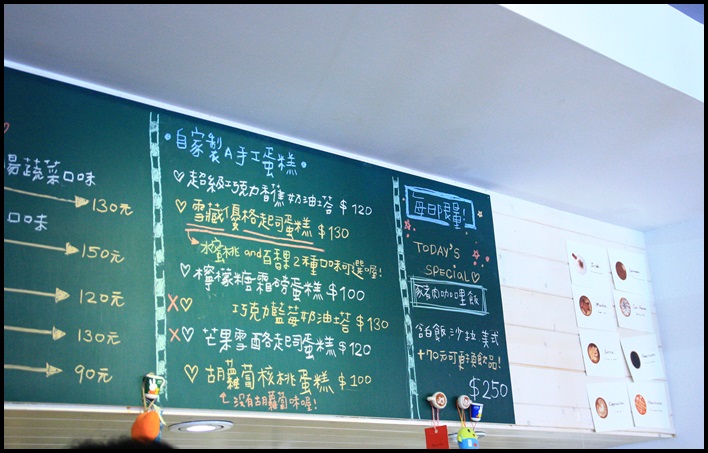 湯蔬菜口味
130元
口味
150元
120元
130元
90元
•自家製A手工蛋糕•
♡超級巧克力香蕉奶油塔 $120
♡雪藏優格起司蛋糕 $130
水蜜桃 and 百香果 2種口味可選喔!
♡檸檬糖霜磅蛋糕 $100
X♡ 巧克力藍莓奶油塔 $130
X♡芒果雪酪起司蛋糕 $120
♡胡蘿蔔核桃蛋糕 $100
沒有胡蘿蔔味喔!
每日限量!
TODAY'S
SPECIAL♡
豬肉咖哩飯
含白飯 沙拉 美式
+70元可更換飲品!
$250